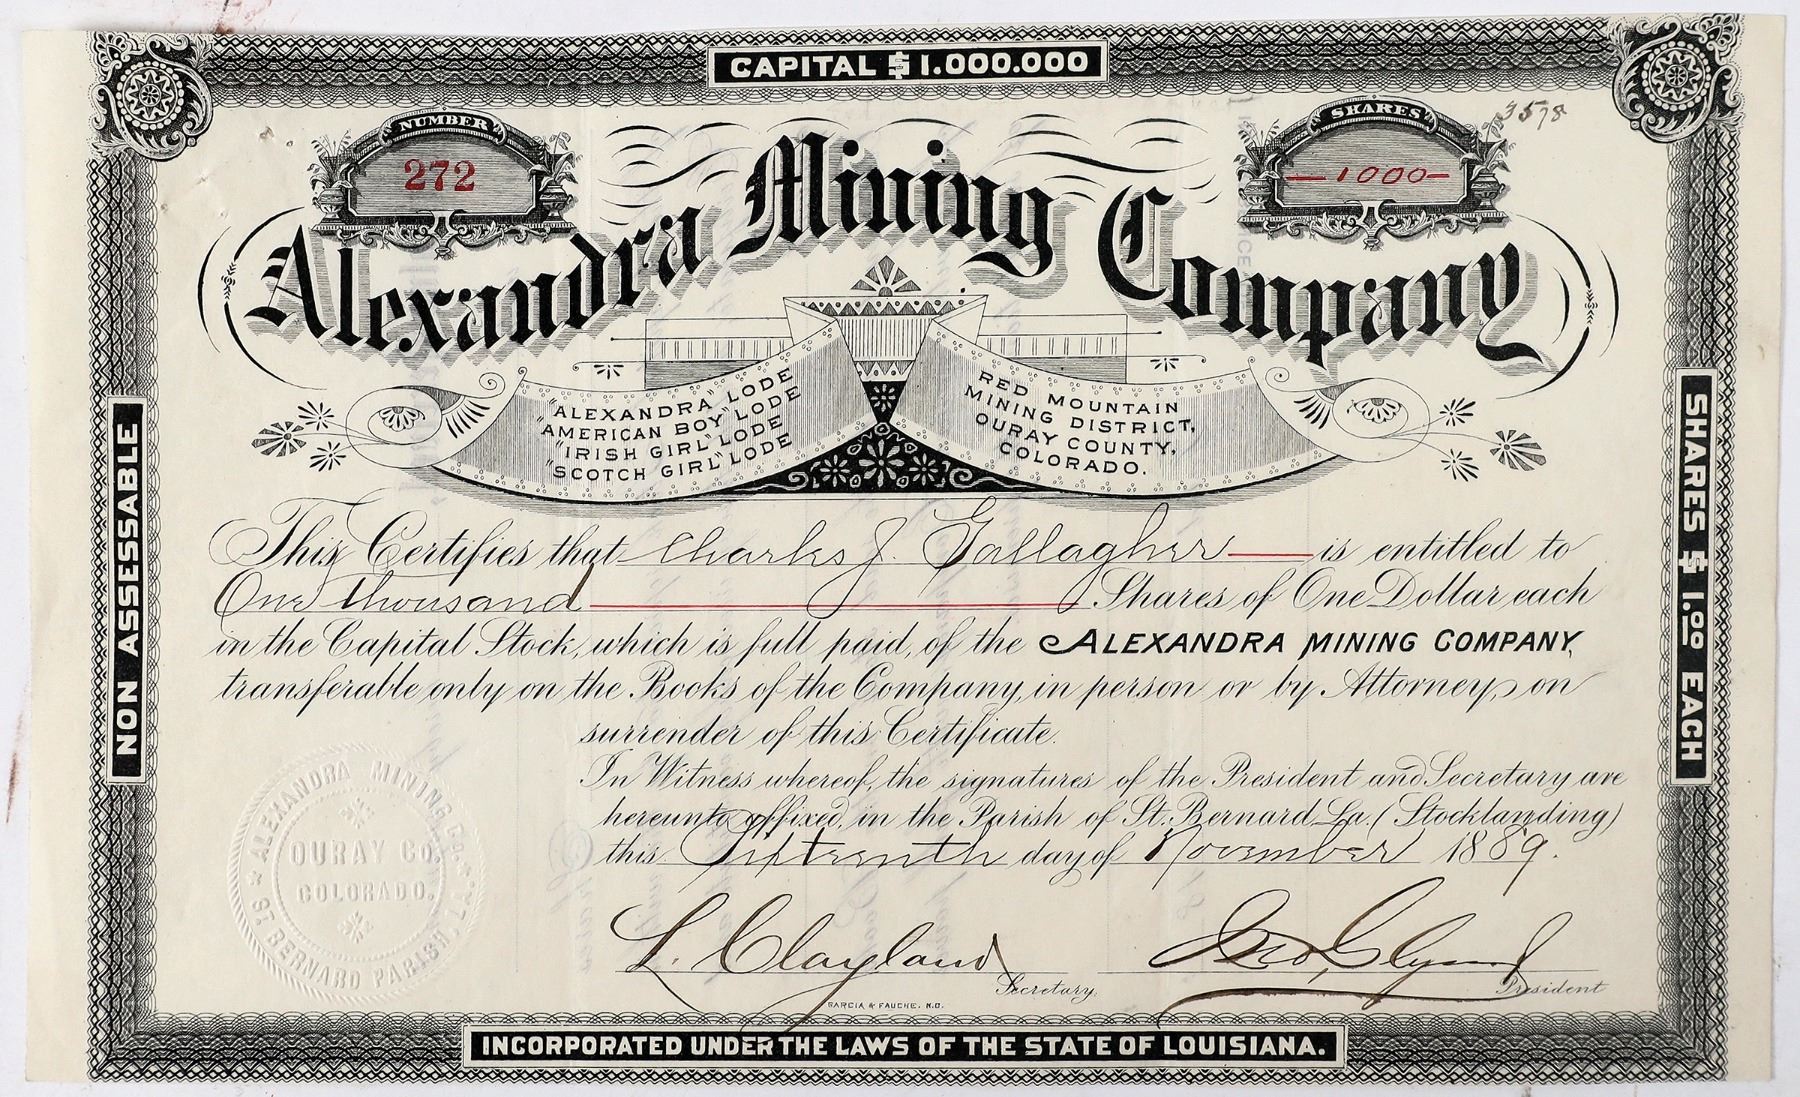 CAPITAL $1.000.000
NUMBER
272
SHARES
3578
—1000—
Alexandra Mining Company
"ALEXANDRA" LODE
"AMERICAN BOY" LODE
"IRISH GIRL" LODE
"SCOTCH GIRL" LODE
RED MOUNTAIN
MINING DISTRICT,
OURAY COUNTY,
COLORADO.
NON ASSESSABLE
SHARES $1.00 EACH
This Certifies that Charles J. Gallagher is entitled to
One thousand Shares of One Dollar each
in the Capital Stock, which is full paid, of the ALEXANDRA MINING COMPANY,
transferable only on the Books of the Company, in person or by Attorney, on
surrender of this Certificate.
In Witness whereof, the signatures of the President and Secretary are
hereunto affixed, in the Parish of St. Bernard, La. (Stocklanding)
this Fifteenth day of November 1889.
ALEXANDRA MINING CO. LA.
ST. BERNARD PARISH,
OURAY CO.
COLORADO.
L. Clayland
Secretary,
Geo. Glynn
President
GARCIA & FAUCHE. N.O.
INCORPORATED UNDER THE LAWS OF THE STATE OF LOUISIANA.